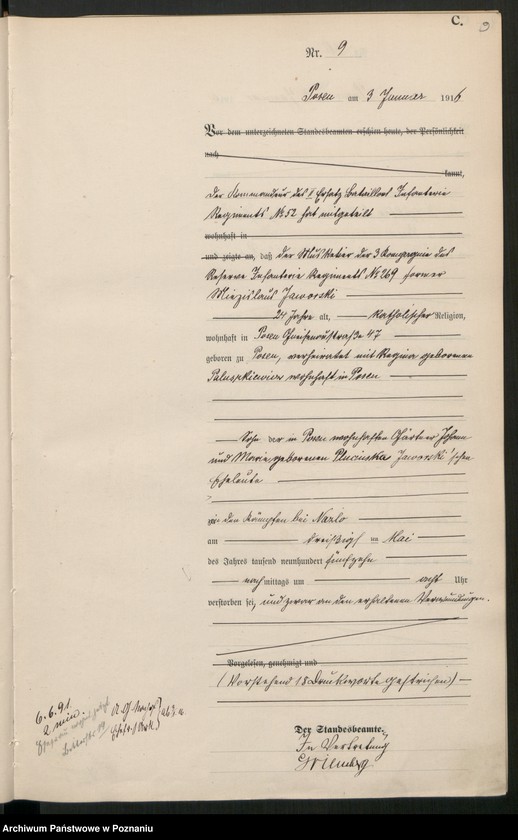 C.
9
Nr. 9
Posen am 3 Januar 1916
Vor dem unterzeichneten Standesbeamten erschien heute, der Persönlichkeit
nach
kannt,
Der Kommandeur des I Ersatz Bataillons Infanterie
Regiments No 52 hat mitgeteilt
wohnhaft in
und zeigte an, daß der Musketier der 3 Kompagnie des
Reserve Infanterie Regiments No 269 Former
Miezislaus Jaworski
24 Jahre alt, katholischer Religion,
wohnhaft in Posen Gneisenaustraße 47
geboren zu Posen, verheiratet mit Regina geborenen
Paluszkiewicz wohnhaft in Posen
Sohn der in Posen wohnhaften Gärtner Johann
und Marie geborenen Plucinska Jaworski'schen
Eheleute
in den Kämpfen bei
am dreißigsten Mai
des Jahres tausend neunhundert fünfzehn
nachmittags um acht Uhr
verstorben sei, und zwar an den erhaltenen Verwundungen.
Vorgelesen, genehmigt und
(Vorstehend 18 Druckworte gestrichen)
Der Standesbeamte.
In Vertretung
6.6.91.
2 min.
Archiwum Państwowe w Poznaniu